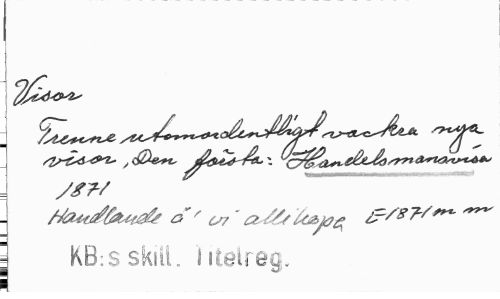 Visor
Trenne utomordentligt vackra nya
visor, Den första: Handelsmansvisa
1871
Handlande ä' vi allihopa E 1871 m m
KB:s skill. Titelreg.